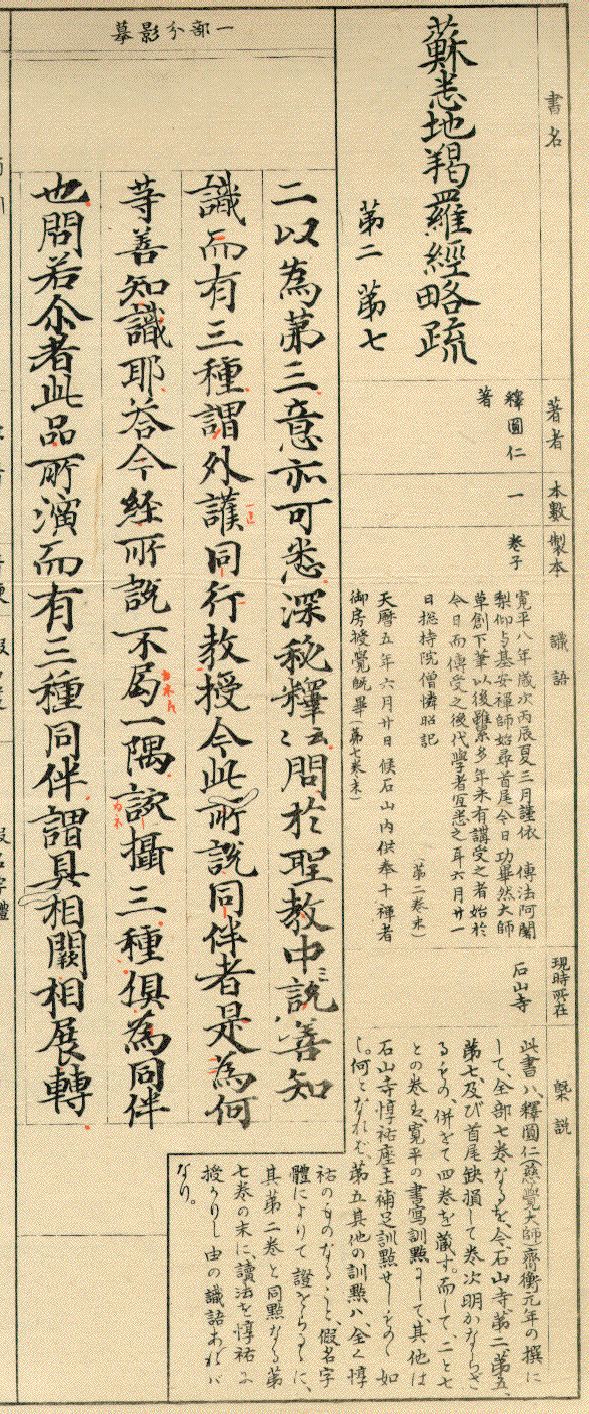 書名
蘇悉地羯羅經略疏
第二 第七
著者
釋圓仁
著
本數
一
製本
卷子
識語
寛平八年歳次丙辰夏三月謹依 傳法阿闍
梨仰与基安禪師始尋首尾今日功畢然大師
草創下筆以後雖累多年未有講受之者始於
今日而傳受之後代學者宜悉之耳六月廿一
日捴持院僧憐昭記
(第二卷末)
天曆五年六月廿日 候石山内供奉十禪者
御房授覺既畢(第七卷末)
現時所在
石山寺
槩說
此書ハ、釋圓仁(慈覺大師)齊衡元年の撰に
して、全部七卷なるを、今石山寺、第二、第五、
第七、及び首尾缺損して卷次明かならざ
るもの、併せて四卷を藏す。而して、二と七
との卷は、寛平の書寫訓點にして、其他は
石山寺惇祐座主補足訓點せしものゝ如
し。何となれば、第五其他の訓點ハ、全く惇
祐のものなること、假名字
體によりて證せらるゝに、
其第二卷と同點なる第
七卷の末に、讀法を惇祐に
授かりし由の識語あれバ
なり。
一部分影摹
二以為第三意亦可悉深秘釋云〻問於聖教中說善知
識而有三種謂外護同行教授今此所說同伴者是為何
等善知識耶答今経所說不局一隅該攝三種俱為同伴
也問若尒者此品所演而有三種同伴謂具相闕相展轉